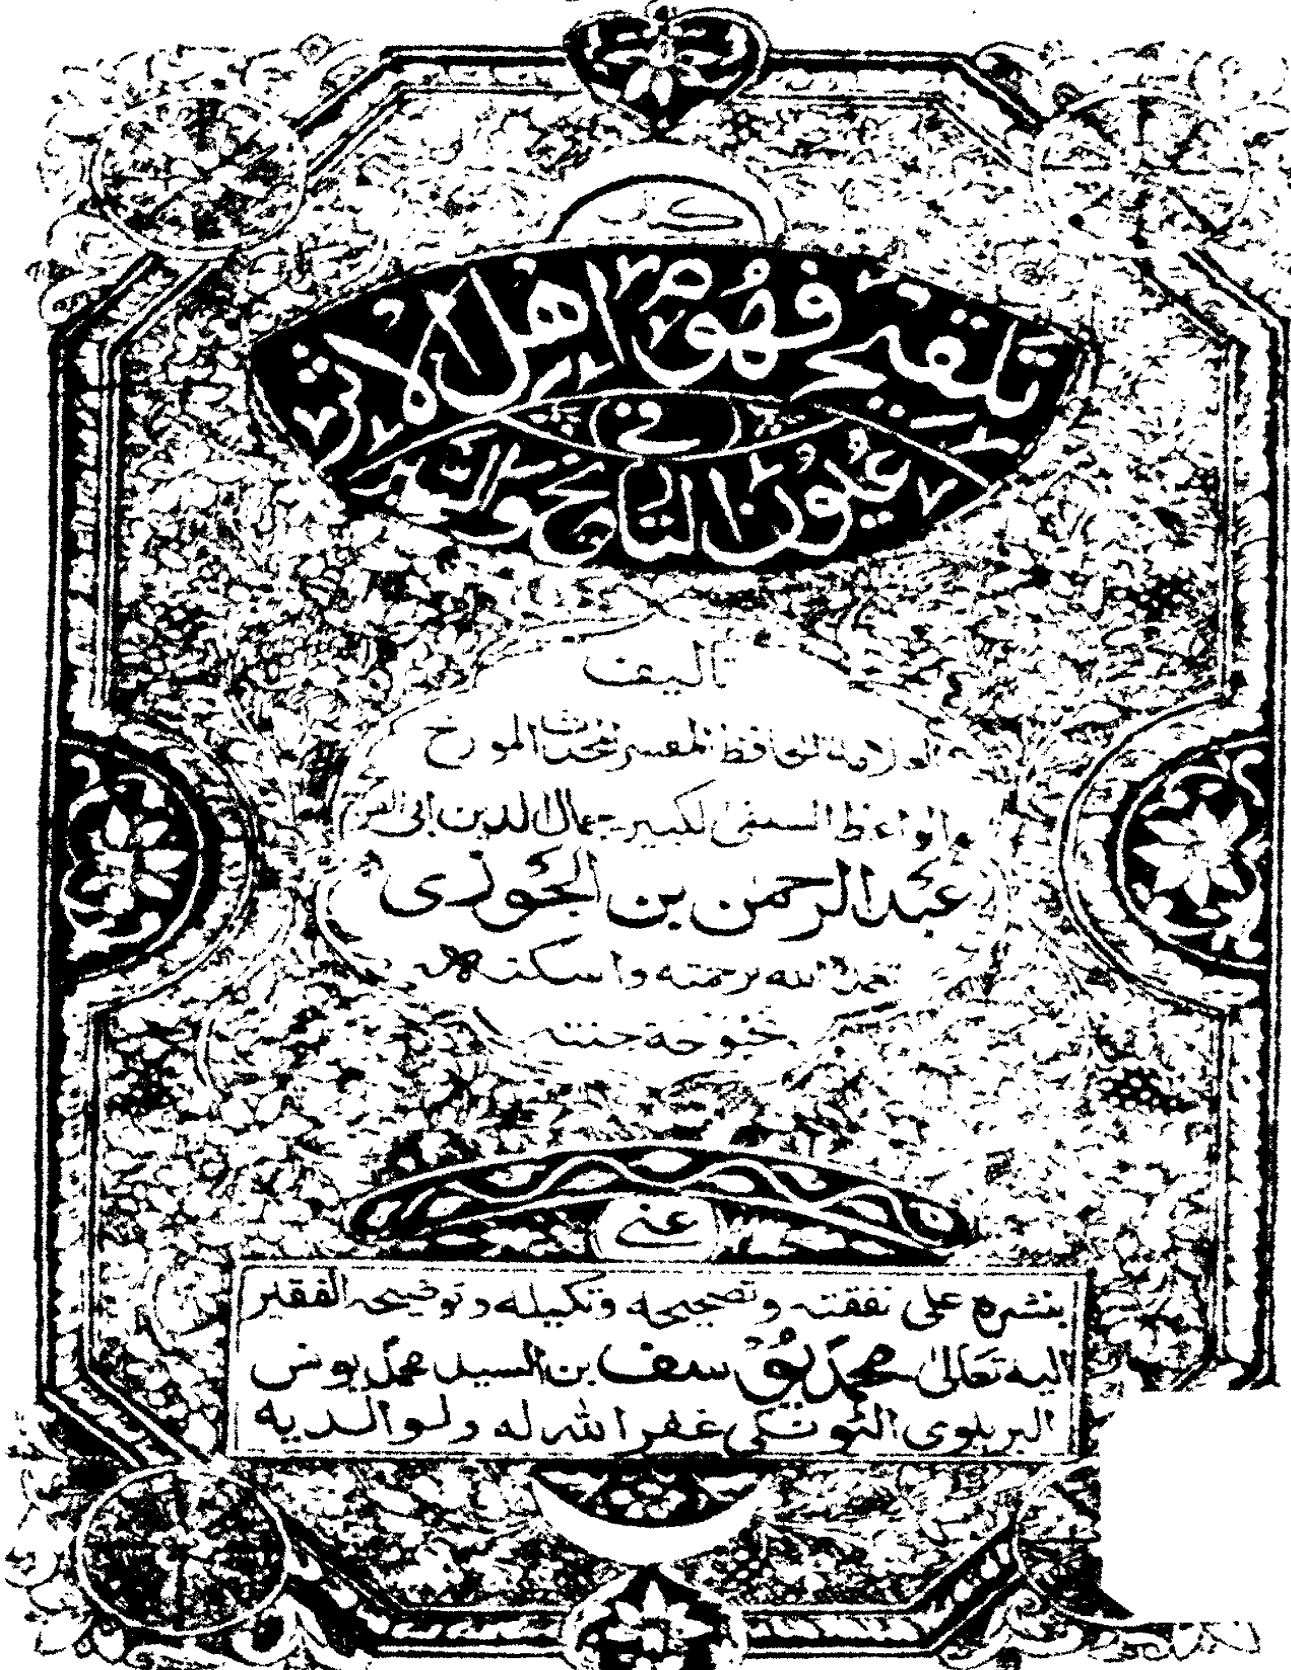 كتاب
تلقيح فهوم اهل الاثر
في
عيون التاريخ والسير
تأليف
العلامة الحافظ المفسر المحدث المورخ
والواعظ السلفى الكبير جمال الدين ابى الفرج
عبد الرحمن بن الجوزى
تغمده الله برحمته واسكنه
بحبوحة جنته
عني
بنشره على نفقته وتصحيحه وتكميله وتوضيحه الفقير
اليه تعالىٰ محمد يوسف بن السيد محمد يونس
البريلوى التونكى غفر الله له ولوالديه